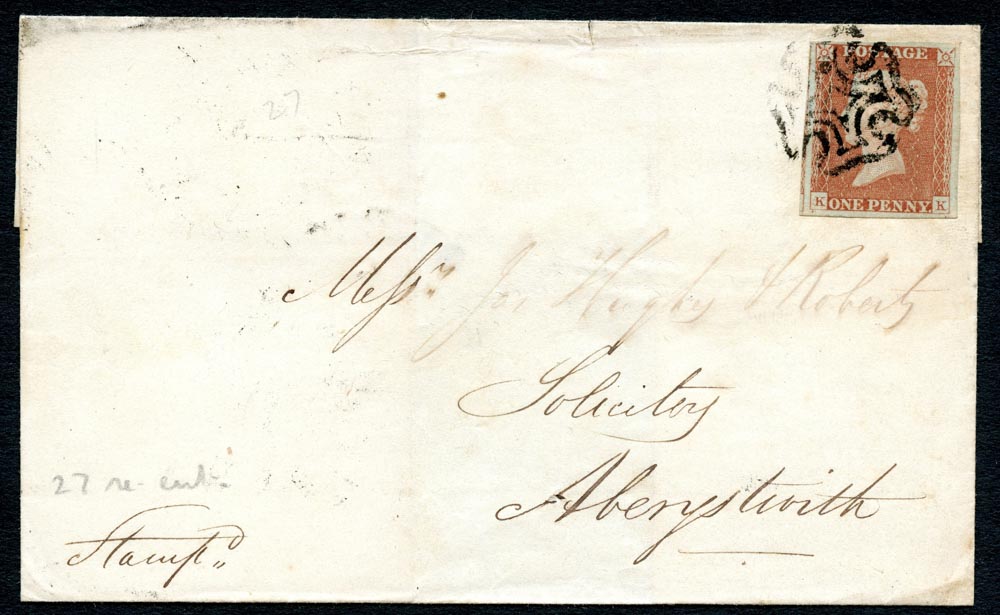 POSTAGE
K ONE PENNY K
27
Messrs Jos Hughes & Roberts
Solicitors
Aberystwith
27 re-ent.
Stampd